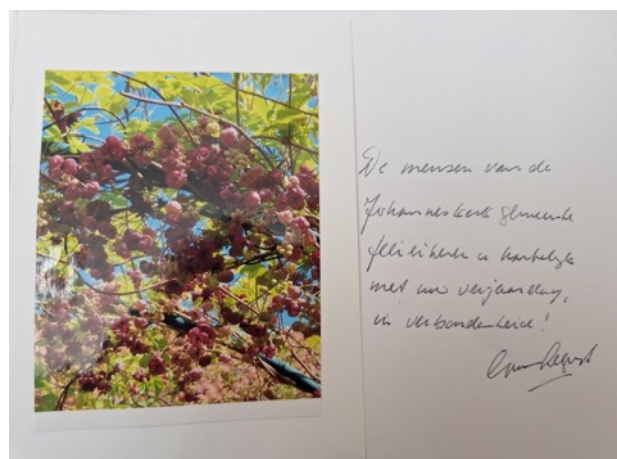 De mensen van de
Johanneskerk gemeente
feliciteren u hartelijk
met uw verjaardag,
in verbondenheid!